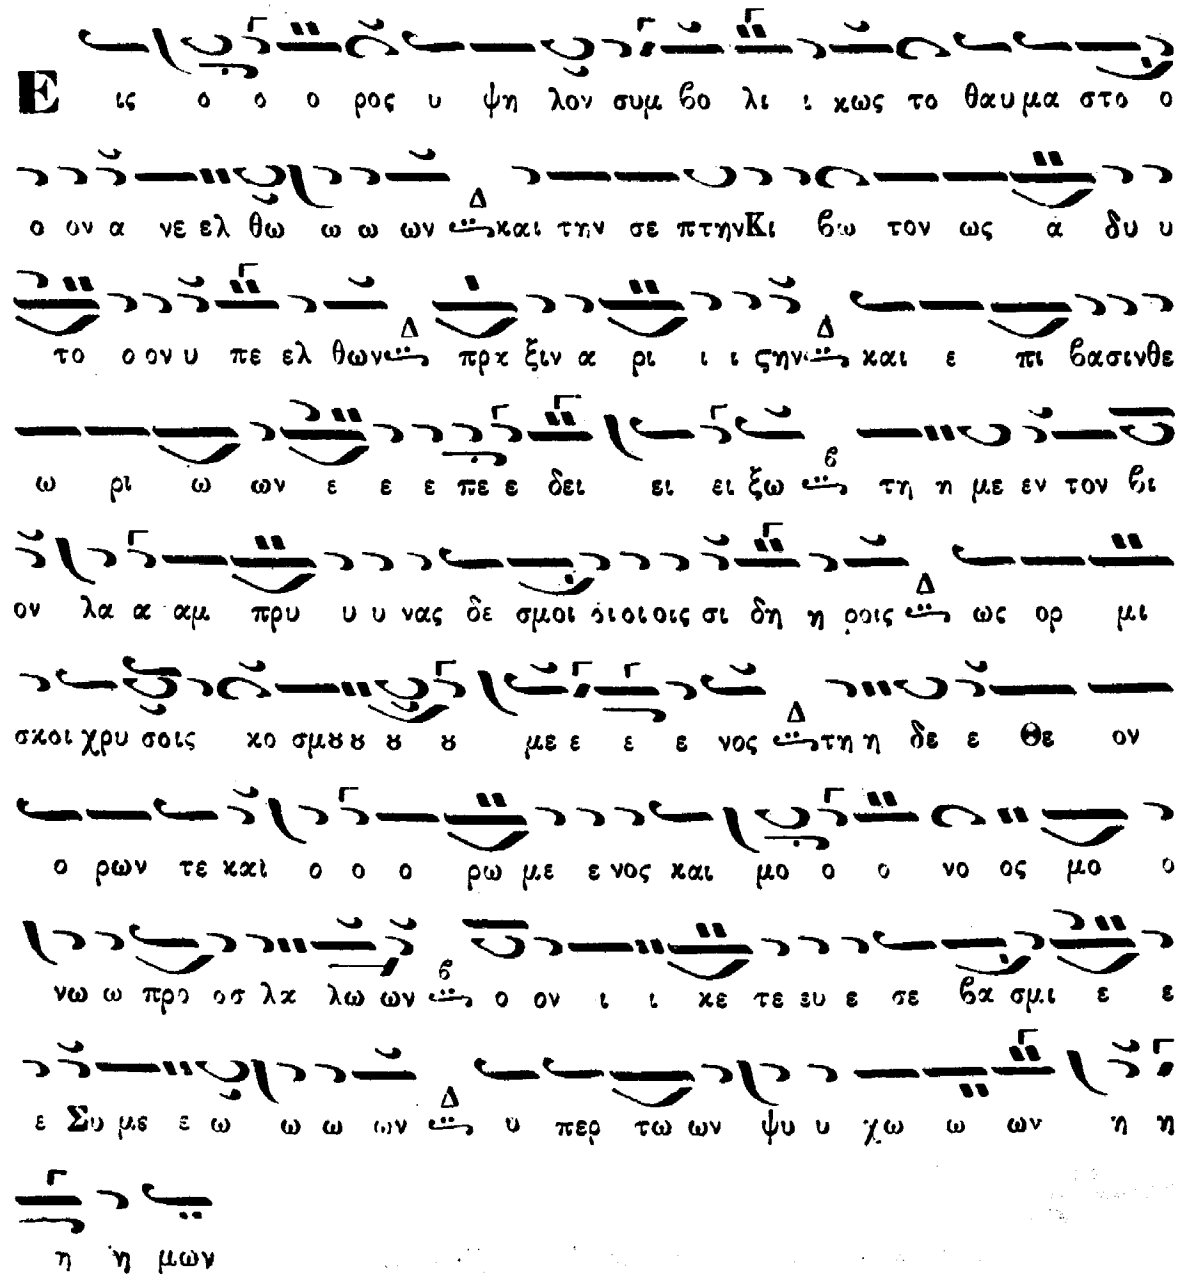 Ε ις ο ο ο ρος υ ψη λον συμ βο λι ι κως το θαυ μα στο ο
ο ον α νε ελ θω ω ω ων Δ και την σε πτην Κι βω τον ως α δυ υ
το ο ον υ πε ελ θων Δ πρα ξιν α ρι ι ι ςην Δ και ε πι βασιν θε
ω ρι ω ων ε ε ε πε ε δει ει ει ξω β τη η με εν τον βι
ον λα α αμ πρυ υ υ νας δε σμοι οι οι οις σι δη η ροις Δ ως ορ μι
σκοι χρυ σοις κο σμȣ ȣ ȣ ȣ με ε ε ε νος Δ τη η δε ε Θε ον
ο ρων τε και ο ο ο ρω με ε νος και μο ο ο νο ος μο ο
νω ω προ οσ λα λω ων β ο ον ι ι κε τε ευ ε σε βα σμι ε ε
ε Συ με ε ω ω ω ων Δ υ περ τω ων ψυ υ χω ω ων η η
η η μων